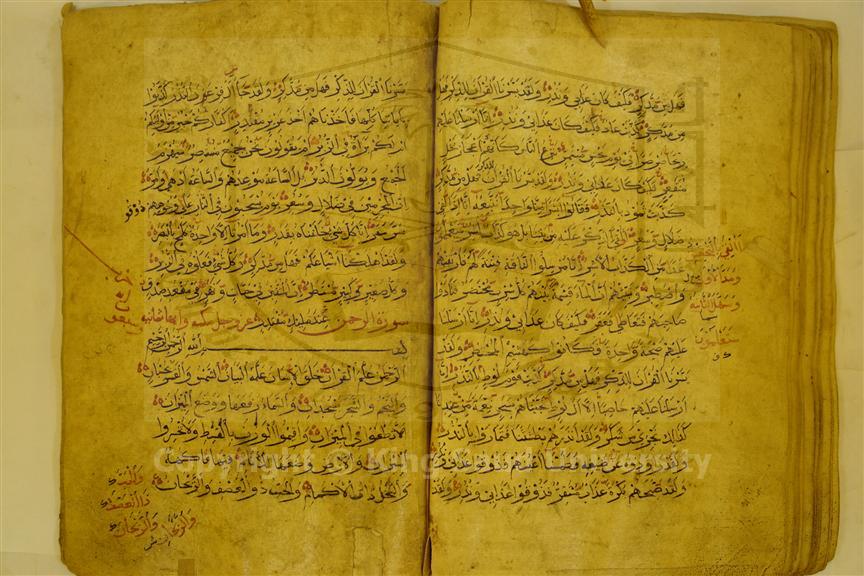 فهل من مدكر فكيف كان عذابي ونذر ولقد يسرنا القران للذكر فهل
من مدكر كذبت عاد فكيف كان عذابي ونذر انا ارسلنا عليهم
ريحا صرصرا في يوم نحس مستمر تنزع الناس كانهم اعجاز نخل
منقعر فكيف كان عذابي ونذر ولقد يسرنا القران للذكر فهل من مدكر
كذبت ثمود بالنذر فقالوا ابشرا منا واحدا نتبعه انا اذا لفي
ضلال وسعر االقي الذكر عليه من بيننا بل هو كذاب اشر سيعلمون
غدا من الكذاب الاشر انا مرسلوا الناقة فتنة لهم فارتقبهم
واصطبر ونبئهم ان الماء قسمة بينهم كل شرب محتضر فنادوا
صاحبهم فتعاطى فعقر فكيف كان عذابي ونذر انا ارسلنا
عليهم صيحة واحدة فكانوا كهشيم المحتظر ولقد
يسرنا القران للذكر فهل من مدكر كذبت قوم لوط بالنذر انا
ارسلنا عليهم حاصبا الا ال لوط نجيناهم بسحر نعمة من عندنا
كذلك نجزي من شكر ولقد انذرهم بطشتنا فتماروا بالنذر
ولقد راودوه عن ضيفه فطمسنا اعينهم فذوقوا عذابي ونذر
ولقد صبحهم بكرة عذاب مستقر فذوقوا عذابي ونذر ولقد
سيعلمون
يسرنا القران للذكر فهل من مدكر ولقد جا ال فرعون النذر كذبوا
باياتنا كلها فاخذناهم اخذ عزيز مقتدر اكفاركم خير من اولئكم
ام لكم براة في الزبر ام يقولون نحن جميع منتصر سيهزم
الجمع ويولون الدبر بل الساعة موعدهم والساعة ادهى وامر
ان المجرمين في ضلال وسعر يوم يسحبون في النار على وجوههم ذوقوا
مس سقر انا كل شي خلقناه بقدر وما امرنا الا واحدة كلمح بالبصر
ولقد اهلكنا اشياعكم فهل من مدكر وكل شي فعلوه في الزبر
وكل صغير وكبير مستطر ان المتقين في جنات ونهر في مقعد صدق
عند مليك مقتدر سورة الرحمن
بسم الله الرحمن الرحيم
الرحمن علم القران خلق الانسان علمه البيان الشمس والقمر بحسبان
والنجم والشجر يسجدان والسماء رفعها ووضع الميزان
الا تطغوا في الميزان واقيموا الوزن بالقسط ولا تخسروا
الميزان والارض وضعها للانام فيها فاكهة
والنخل ذات الاكمام والحب ذو العصف والريحان
والريحان
Copyright © King Saud University